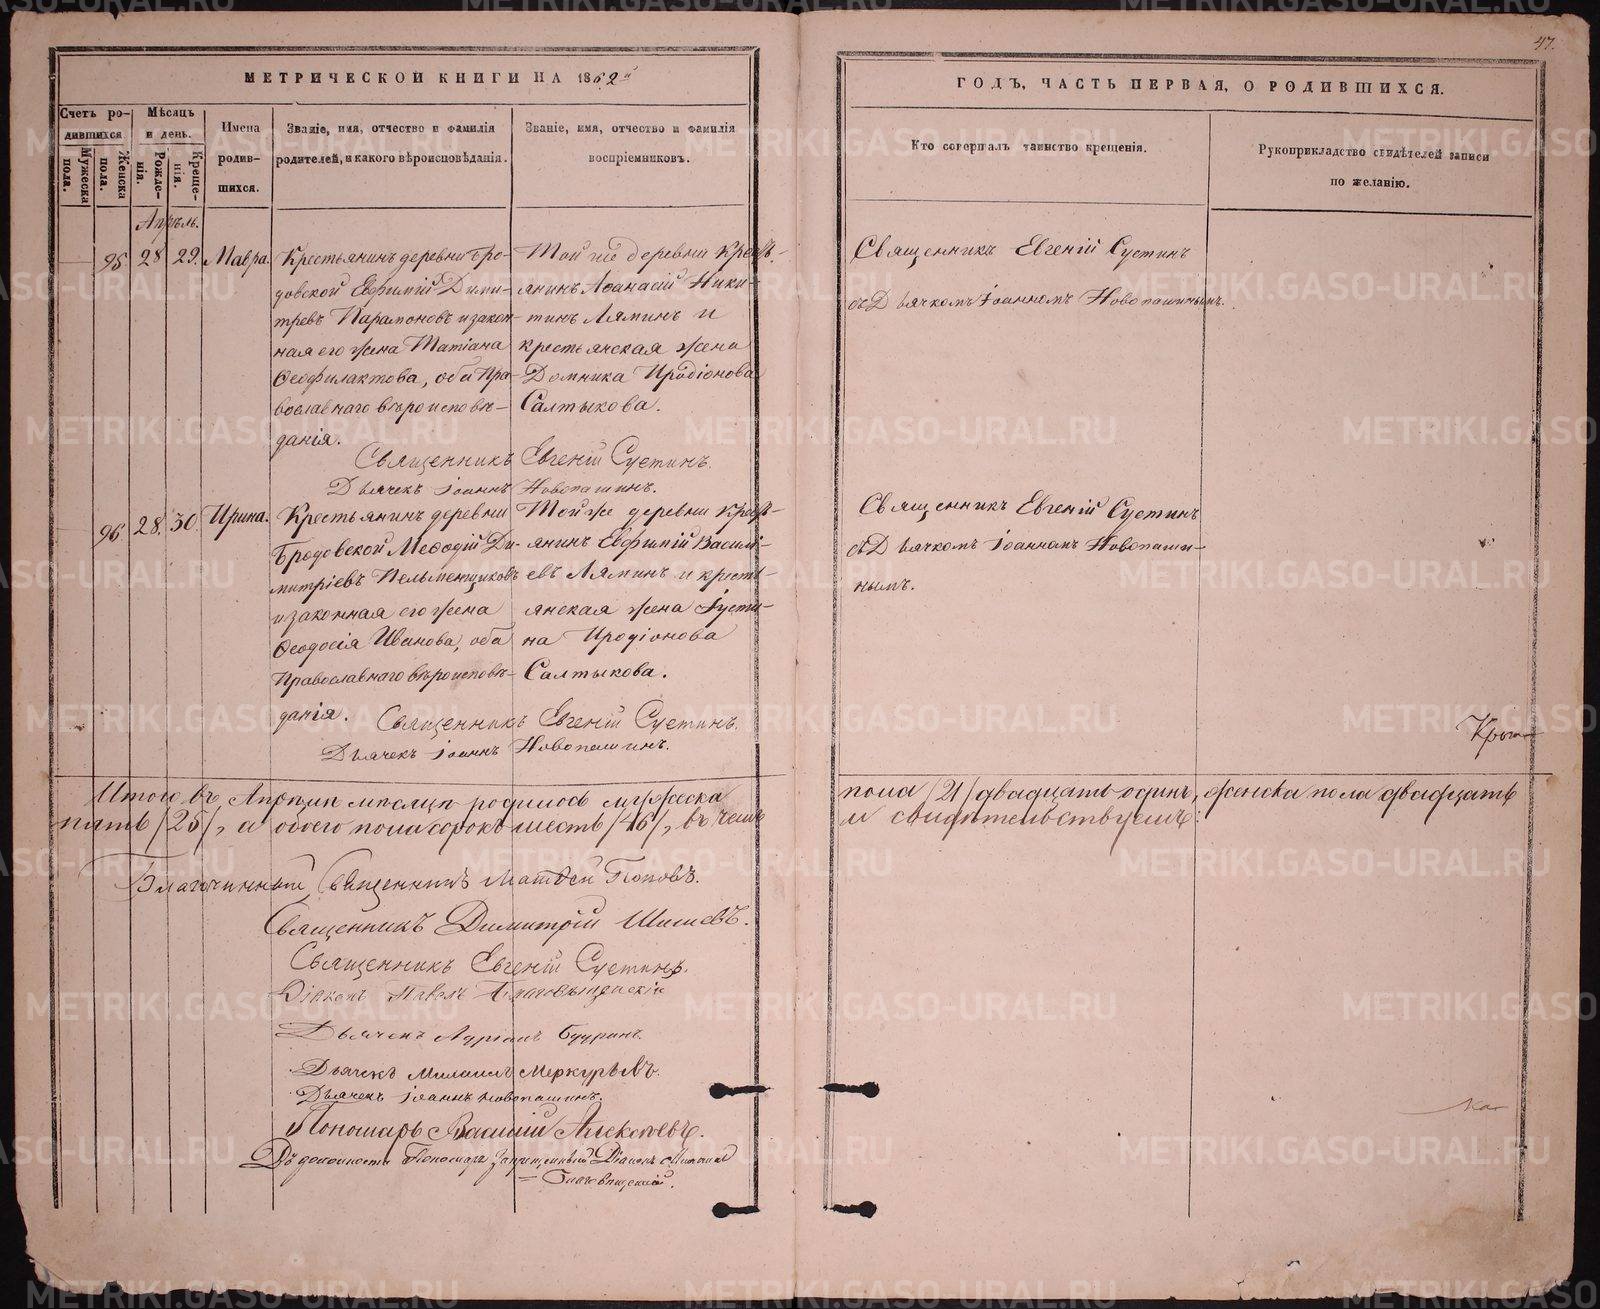 47.
МЕТРИЧЕСКОЙ КНИГИ НА 1862й
ГОДЪ, ЧАСТЬ ПЕРВАЯ, О РОДИВШИХСЯ.
Счетъ ро-
дившихся
Мужеска пола.
Женска пола.
Мѣсяцъ
и день.
Рожде-
нія.
Креще-
нія.
Имена
родив-
шихся.
Званіе, имя, отчество и фамилія
родителей, и какого вѣроисповѣданія.
Званіе, имя, отчество и фамилія
воспріемниковъ.
Кто совершалъ таинство крещенія.
Рукоприкладство свидѣтелей записи
по желанію.
Апрѣль.
95 28 29. Мавра.
Крестьянинъ деревни Бро-
довской Евфимій Дими-
тревъ Парамоновъ и закон-
ная его жена Татіана
Ѳеофилактова, оба Пра-
вославнаго вѣроисповѣ-
данія.
Той же деревни Крест-
янинъ Аѳанасій Ники-
тинъ Ляминъ и
крестьянская жена
Домника Иродіонова
Салтыкова.
Священникъ Евгеній Сустинъ
съ Дьячкомъ Іоанномъ Новопашинымъ.
Священникъ Евгеній Сустинъ.
Дьячекъ Іоаннъ Новопашинъ.
96 28. 30 Ирина.
Крестьянинъ деревни
Бродовской Меѳодій Ди-
митріевъ Пельменщиковъ
и законная его жена
Ѳеодосія Иванова, оба
Православнаго вѣроисповѣ-
данія.
Той же деревни Крест-
янинъ Евфимій Василь-
евъ Ляминъ и кресть-
янская жена Іусти-
на Иродіонова
Салтыкова.
Священникъ Евгеній Сустинъ
съ Дьячкомъ Іоанномъ Новопаши-
нымъ.
Священникъ Евгеній Сустинъ.
Дьячекъ Іоаннъ Новопашинъ.
Итого въ Апрѣлѣ мѣсяцѣ родилось мужеска
пола /21/ двадцать одинъ, женска пола двадцать
пять /25/, а обоего пола сорокъ шесть /46/, въ чемъ
и свидѣтельствуемъ:
Благочинный, Священникъ Матѳей Поповъ.
Священникъ Димитрій Шишевъ.
Священникъ Евгеній Сустинъ.
Діаконъ Павелъ Благовѣщенскій
Дьячекъ Адріанъ Будринъ.
Дьячекъ Михаилъ Меркурьевъ.
Дьячекъ Іоаннъ Новопашинъ.
Пономарь Василій Алексѣевъ.
Въ должности Пономаря запрещенный Діаконъ Михаилъ
Благовѣщенскій.
METRIKI.GASO-URAL.RU